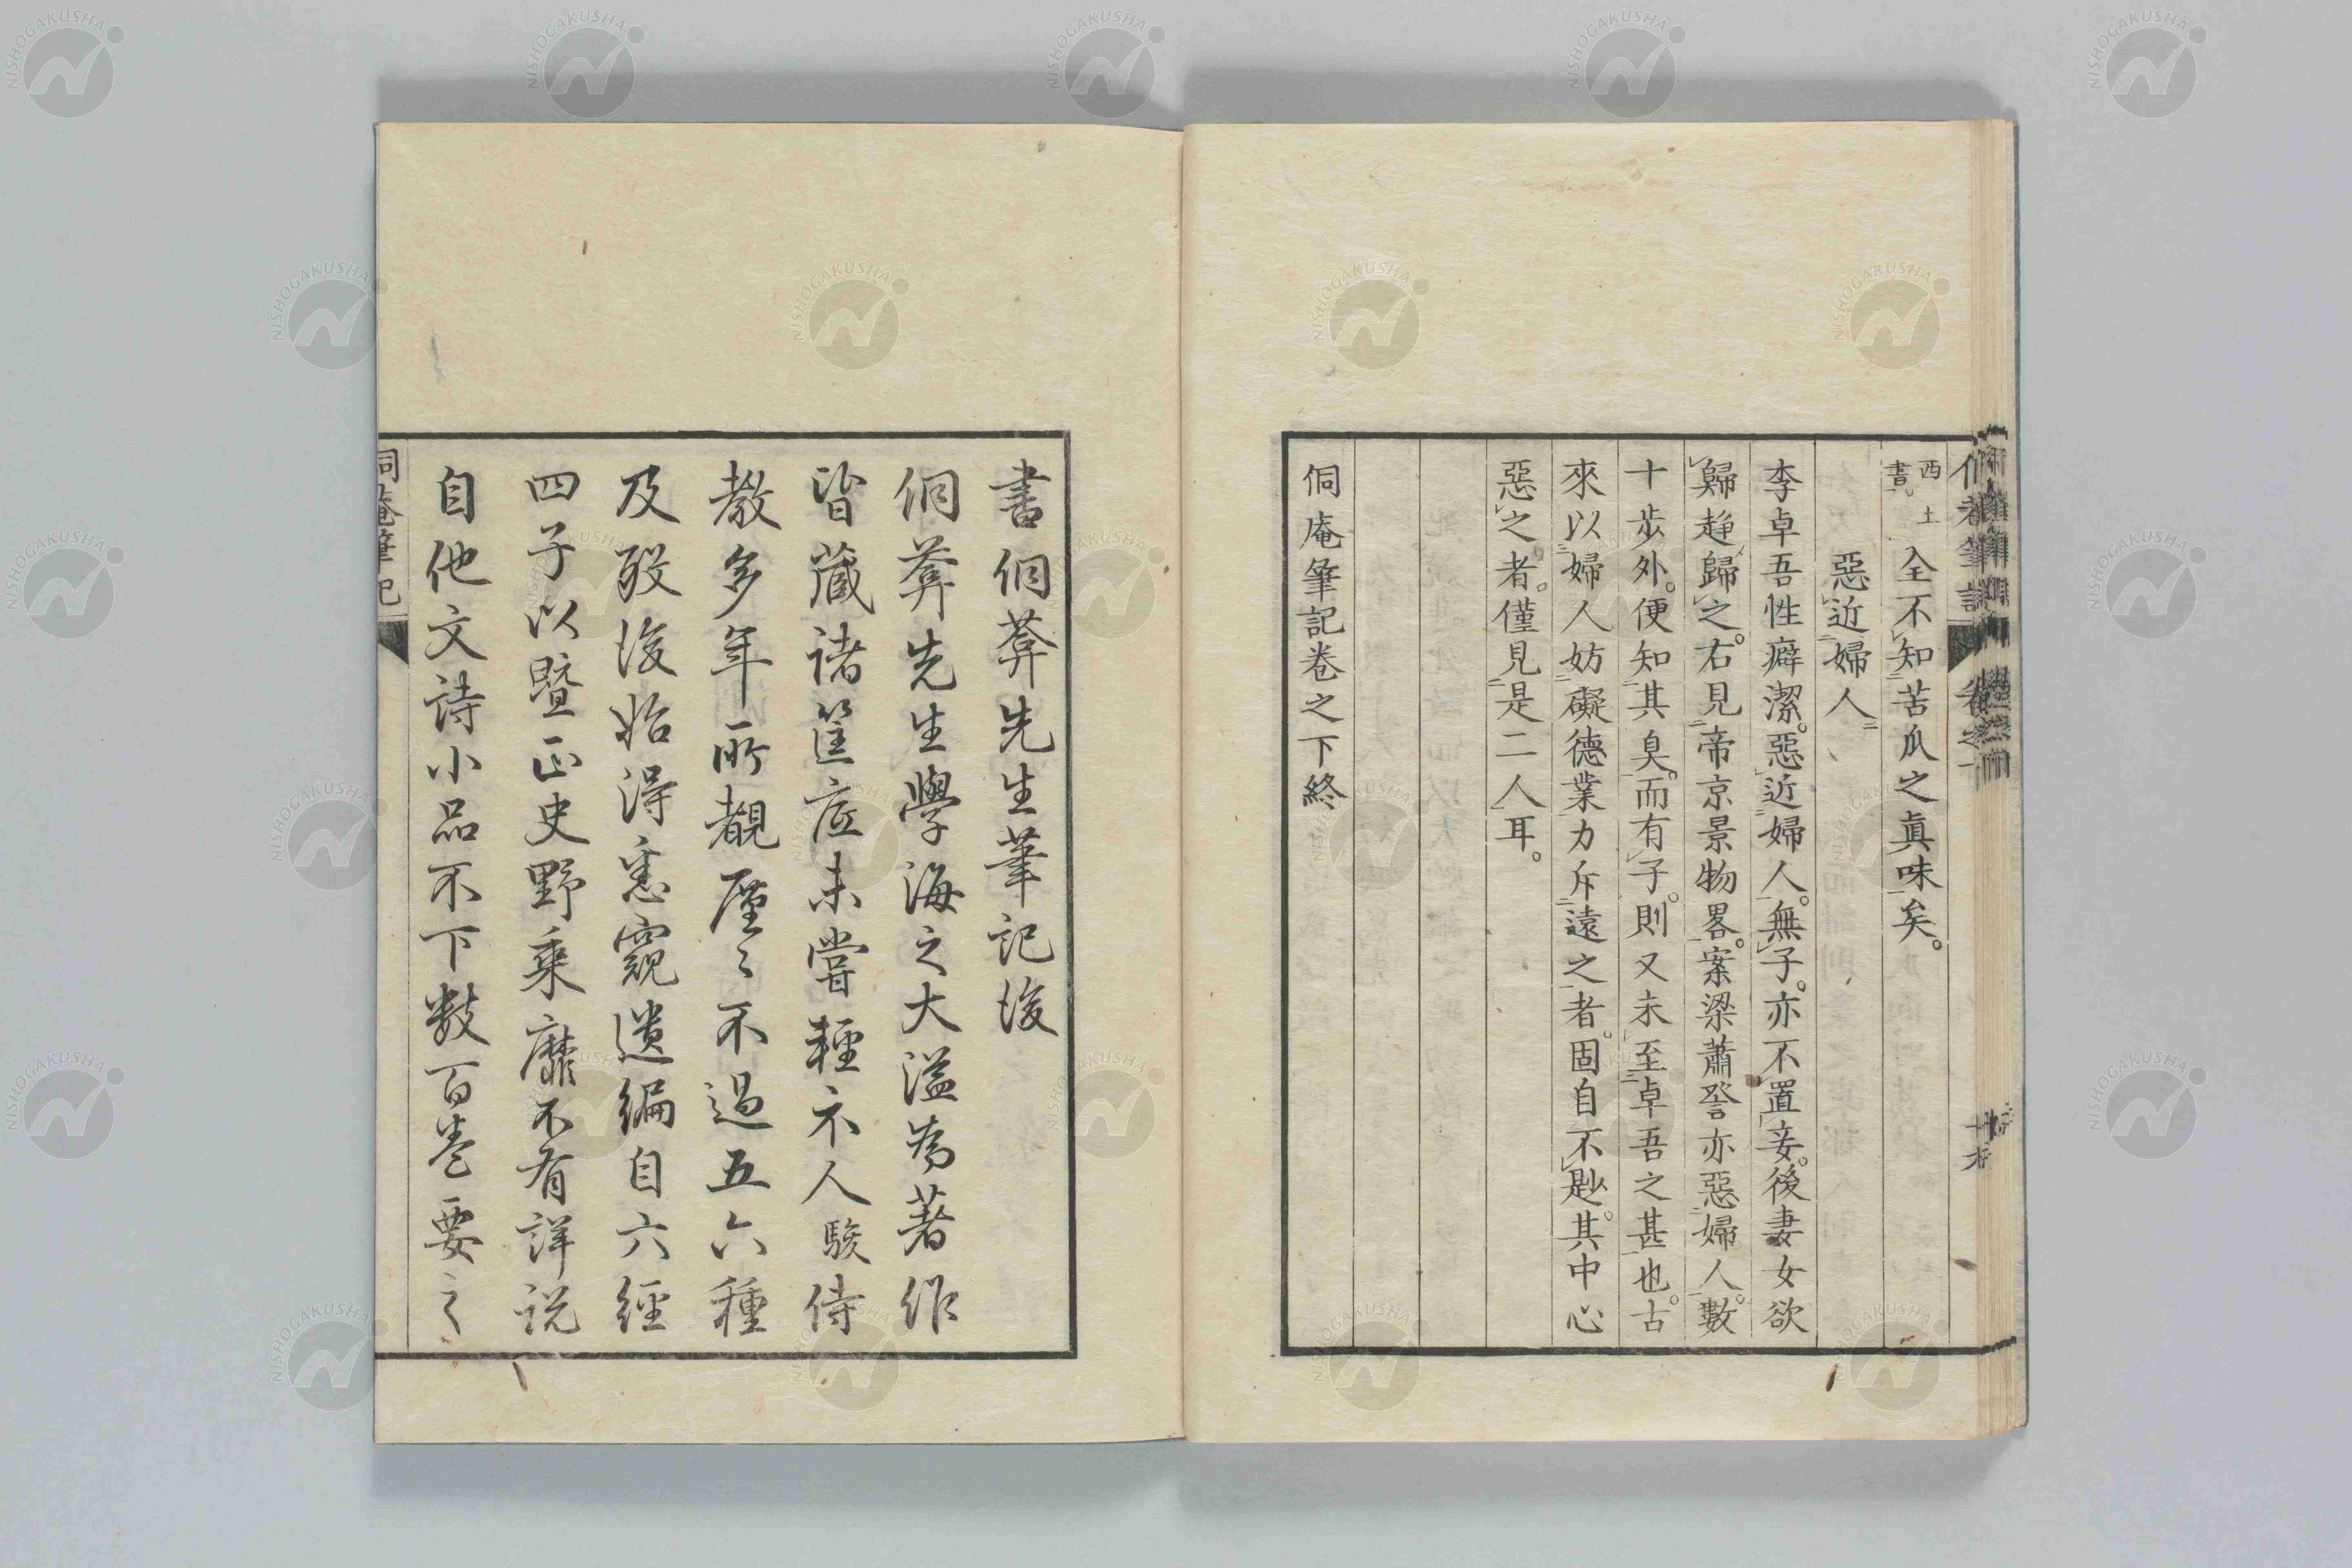 西土書。全不知苦瓜之眞味矣。
惡近婦人
李卓吾性癖潔。惡近婦人。無子。亦不置妾。後妻女欲
歸趣歸之。右見帝京景物畧。案梁蕭詧亦惡婦人。數
十步外。便知其臭。而有子。則又未至卓吾之甚也。古
來以婦人妨礙德業力斥遠之者。固自不尟。其中心
惡之者。僅見是二人耳。
侗庵筆記卷之下終
書侗葊先生筆記後
侗葊先生學海之大溢為著作
皆藏諸筐底未嘗輕示人駿侍
教多年所覩厪〻不過五六種
及歿後始得悉窺遺編自六經
四子以曁正史野乘靡不有詳說
自他文詩小品不下數百卷要之
侗菴筆記
NISHOGAKUSHA